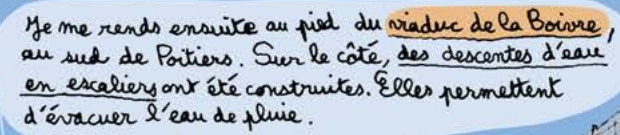 Je me rends ensuite au pied du viaduc de la Boivre,
au sud de Poitiers. Sur le côté, des descentes d'eau
en escaliers ont été construites. Elles permettent
d'évacuer l'eau de pluie.